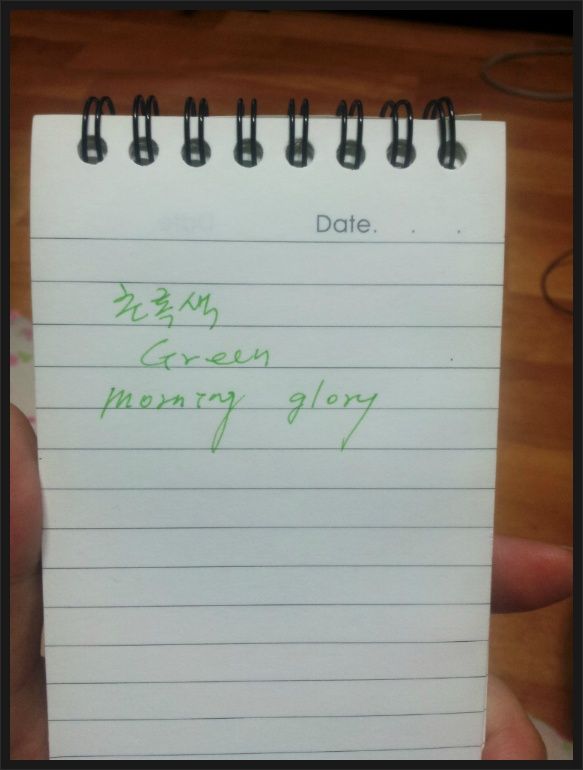 Date. . .
초록색
Green
morning glory